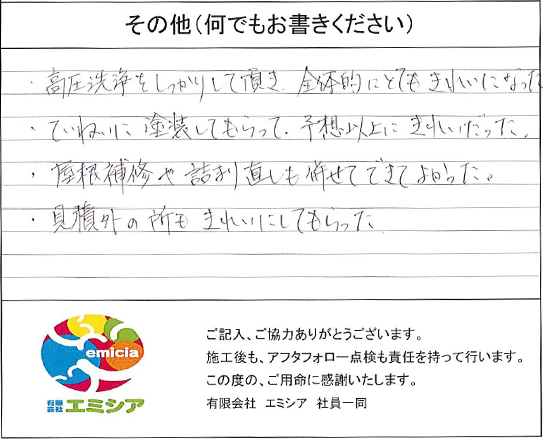 その他(何でもお書きください)
・高圧洗浄をしっかりして頂き、全体的にとてもきれいになった
・ていねいに塗装してもらって、予想以上にきれいだった。
・屋根補修や詰まり直しも併せてできてよかった。
・見積外の所もきれいにしてもらった
emicia
有限会社 エミシア
ご記入、ご協力ありがとうございます。
施工後も、アフタフォロー点検も責任を持って行います。
この度の、ご用命に感謝いたします。
有限会社 エミシア 社員一同